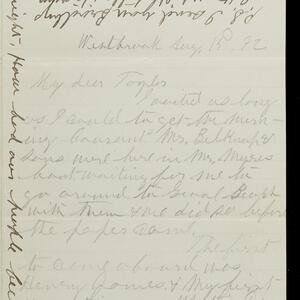 P.S. I send you
Westbrook Aug 15th 92
My dear Taylor
waited as long
as I could to get the Morn-
ing Courant. Mr. Belknap &
sons were here in Mr. Myers
boat waiting for me to
go around to
with them & we did so before
the paper came.
The first
to come aboard was
Henry James. & My first
night, How had our people